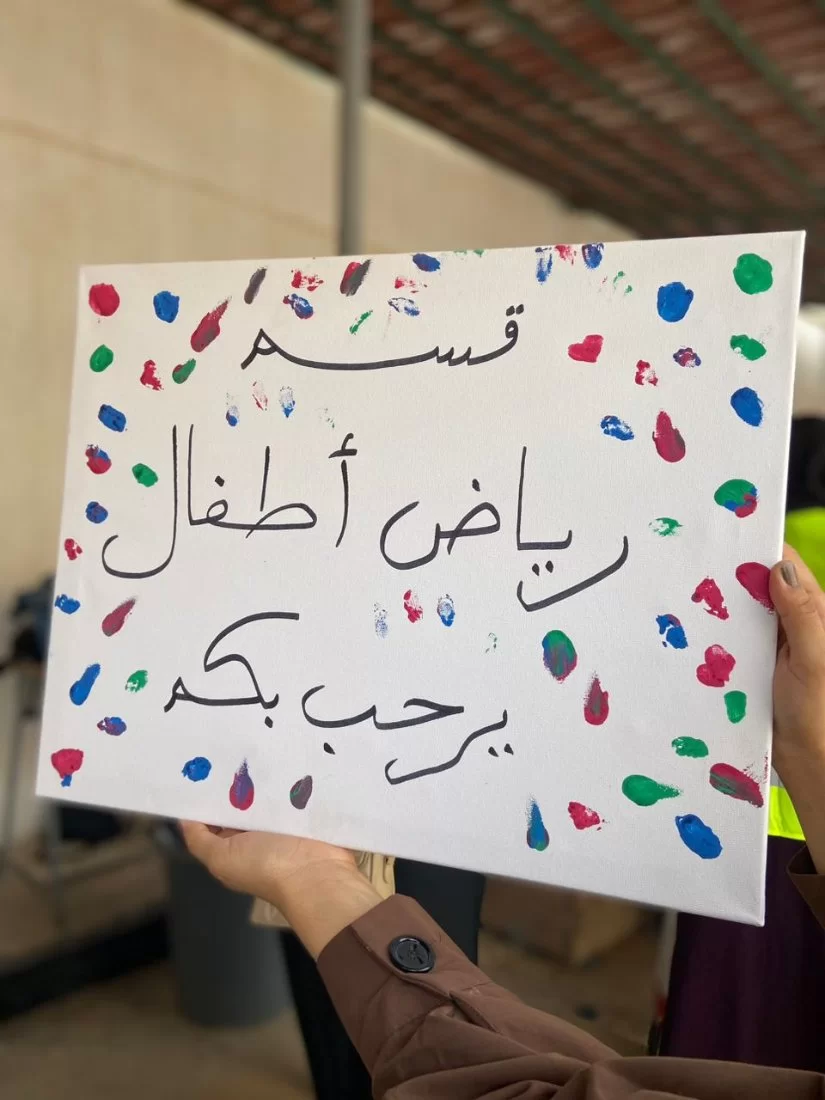 قسم
رياض أطفال
يرحب بكم